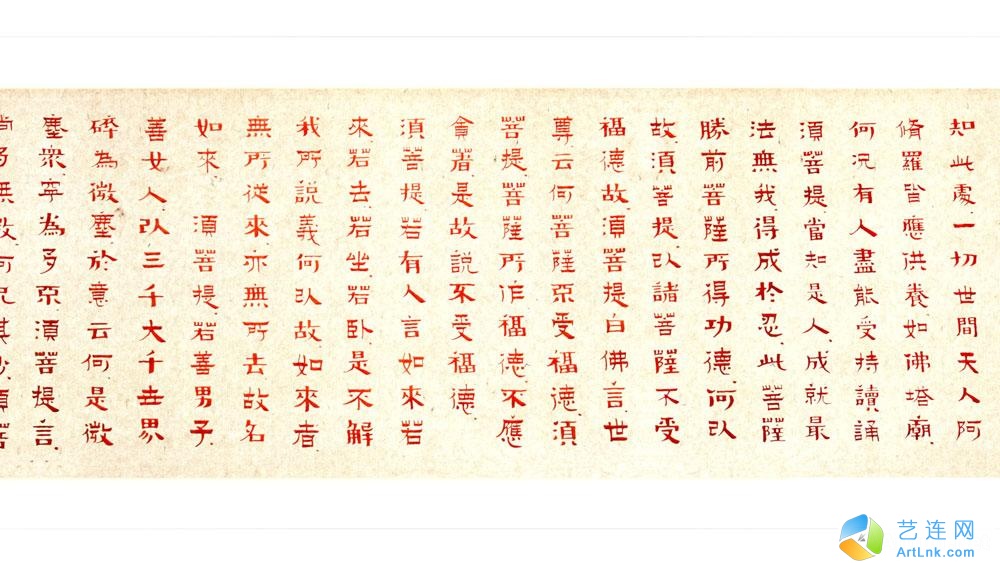 知此處一切世間天人阿
脩羅皆應供養如佛塔廟
何況有人盡能受持讀誦
須菩提當知是人成就最
法無我得成於忍此菩薩
勝前菩薩所得功德何以
故須菩提以諸菩薩不受
福德故須菩提白佛言世
尊云何菩薩不受福德須
菩提菩薩所作福德不應
貪著是故說不受福德
須菩提若有人言如來若
來若去若坐若卧是不解
我所說義何以故如來者
無所從來亦無所去故名
如來 須菩提若善男子
善女人以三千大千世界
碎為微塵於意云何是微
塵眾寧為多不須菩提言
艺连网
ArtLnk.com